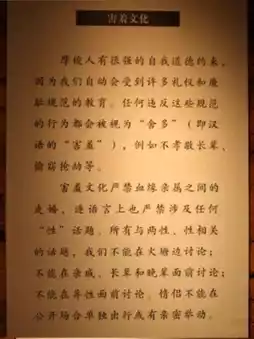 害羞文化
摩梭人有很强的自我道德约束,
因为我们自幼会受到许多礼仪和廉
耻规范的教育。任何违反这些规范
的行为都会被视为“舍多”(即汉
语的“害羞”),例如不孝敬长辈、
偷窃抢劫等。
害羞文化严禁血缘亲属之间的
走婚,连语言上也严禁涉及任何
“性”话题。所有与两性、性相关
的话题,我们不能在火塘边讨论;
不能在亲戚、长辈和晚辈面前讨论;
不能在异性面前讨论。情侣不能在
公开场合单独出行或有亲密举动。